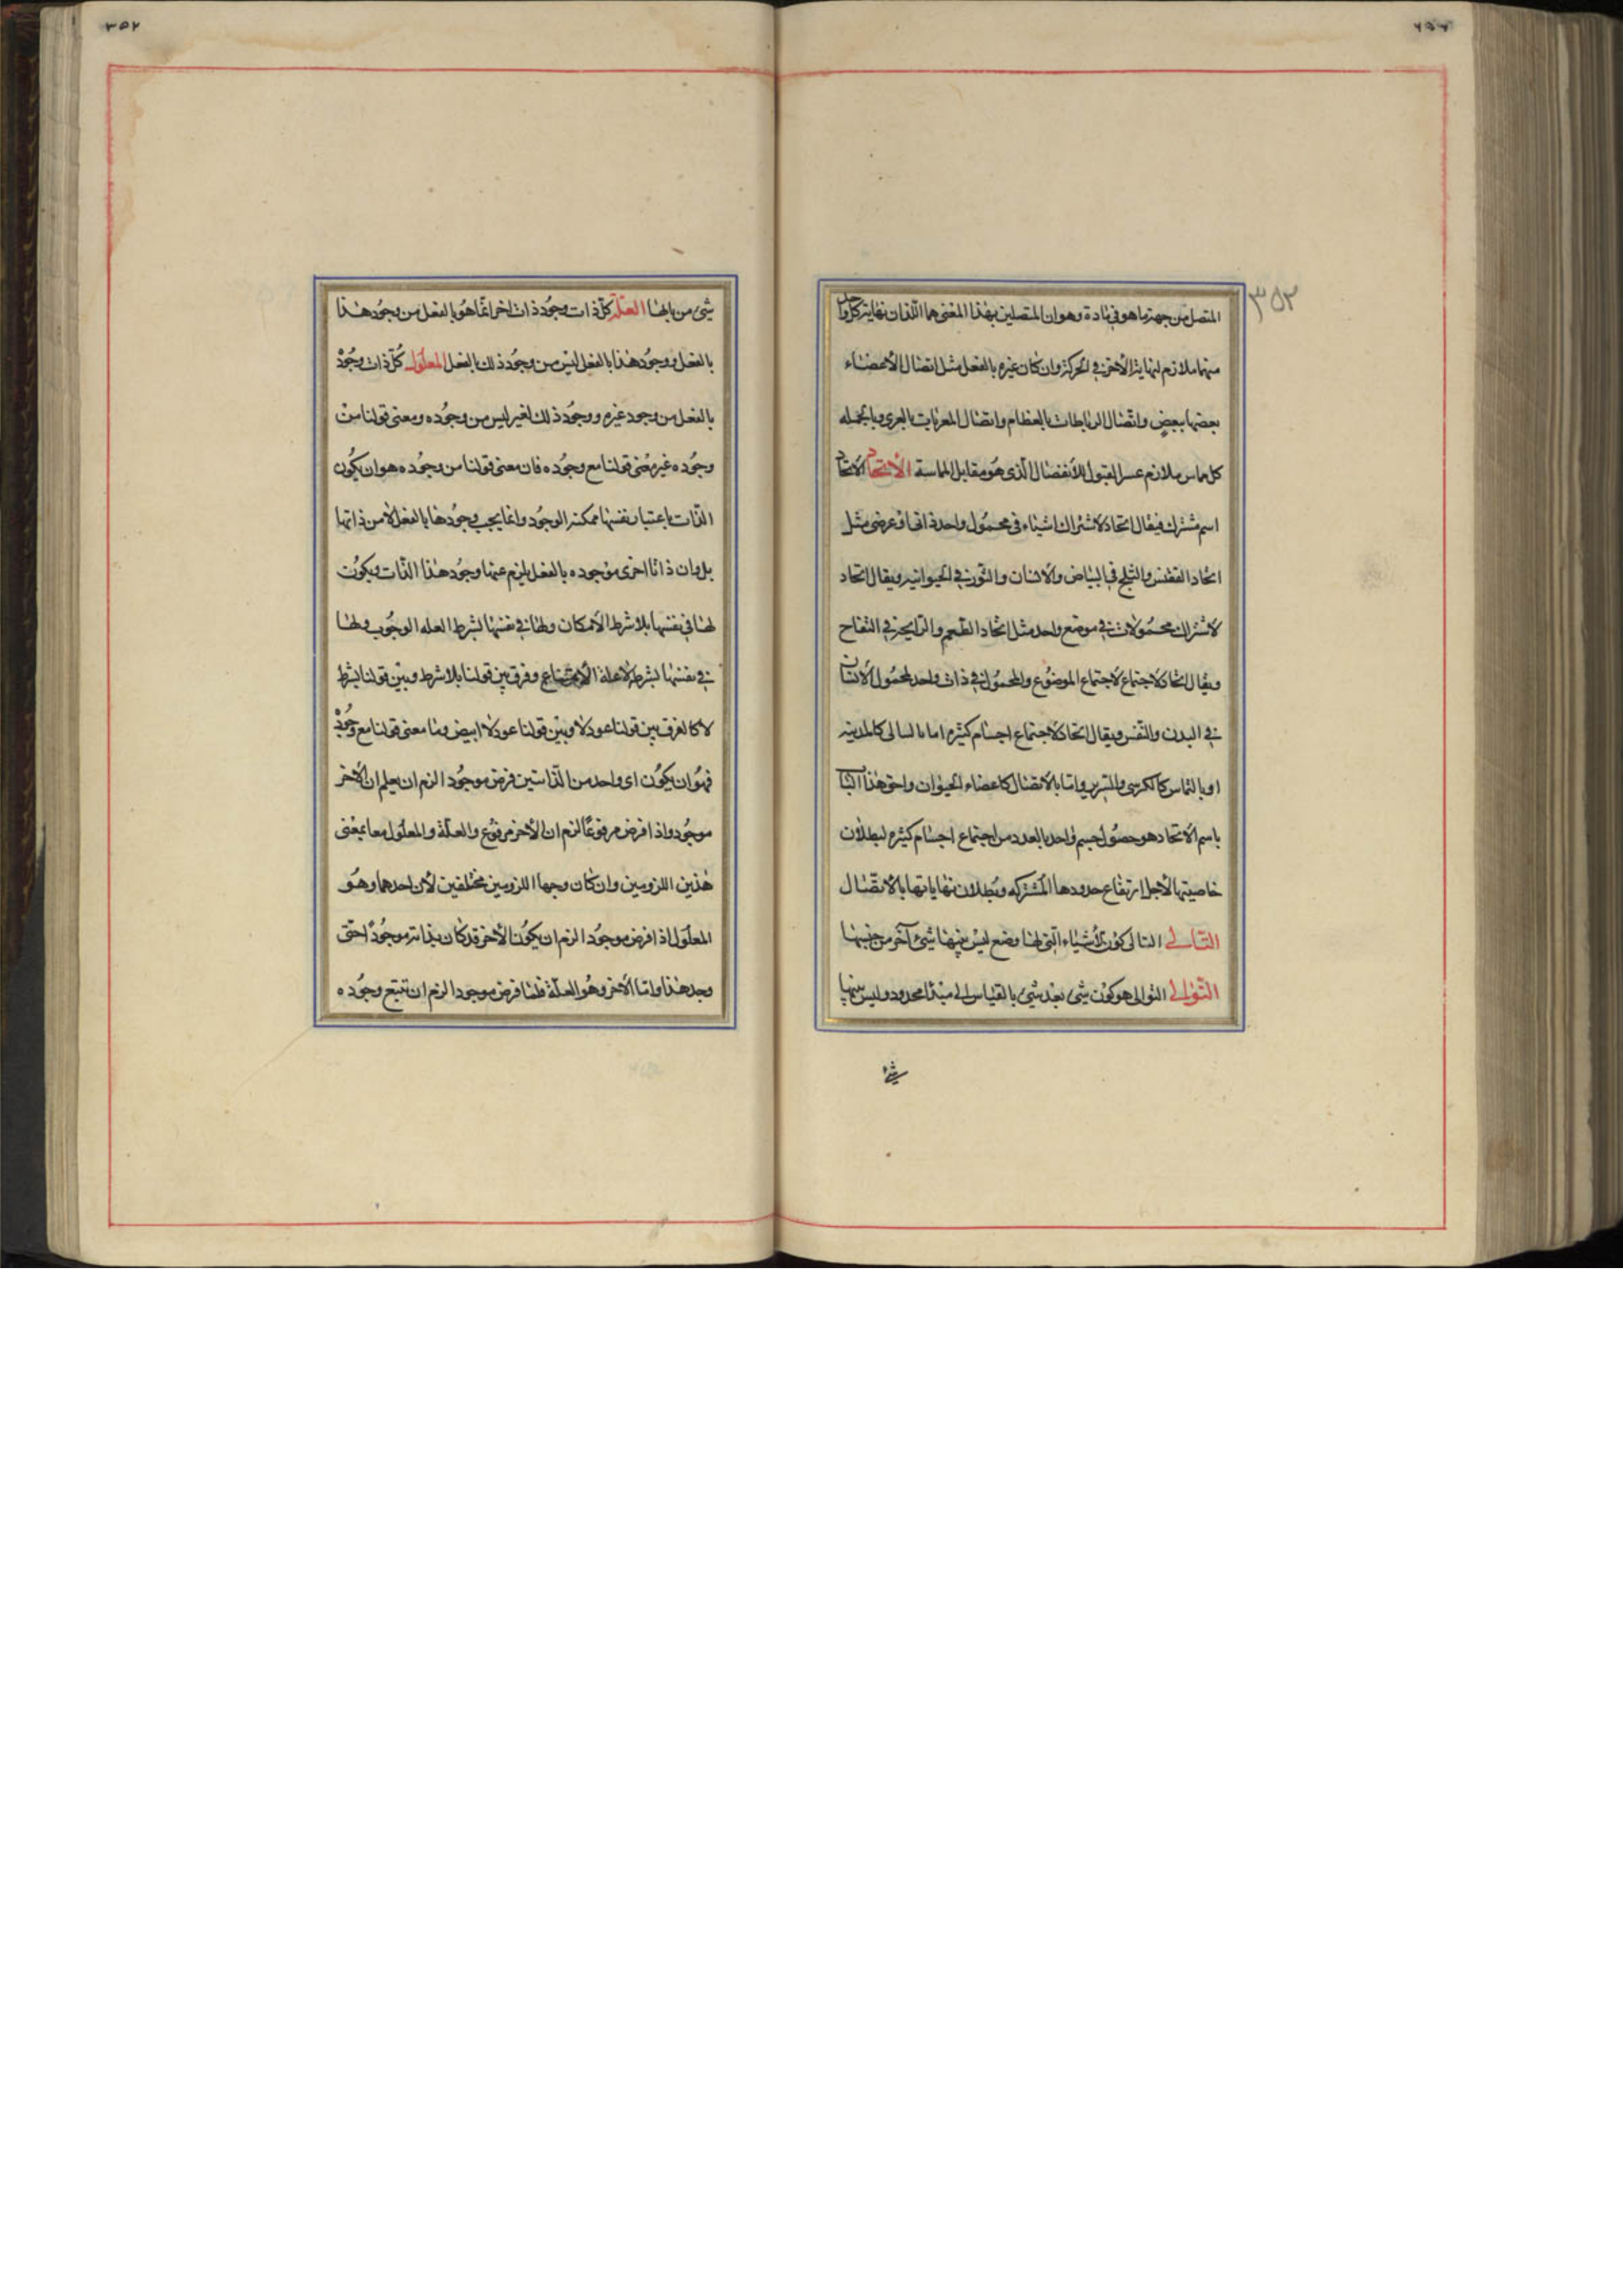 ٣٥٢
المتصل من جهة ما هو فى مادة وهو ان المتصلين بهذا المعنى هما اللذان نهاية كل واحد
منهما ملازم لنهاية الأخر فى الحركة وان كان غيره بالفعل مثل اتصال الأعضاء
بعضها ببعض واتصال الرباطات بالعظام واتصال المغريات بالغرى وبالجمله
كل مماس ملازم عسر القبول للأنفصال الذى هو مقابل المماسة الأتحاد الاتحاد
اسم مشترك فيقال اتحاد لاشتراك اشياء فى محمول واحد ذاتى او عرضى مثل
اتحاد الققنس والثلج فى البياض والانسان والثور فى الحيوانيه ويقال اتحاد
لاشتراك محمولات فى موضع واحد مثل اتحاد الطعم والرايحة فى التفاح
ويقال اتحاد لاجتماع الموضوع والمحمول فى ذات واحد لمحصول الانسان
فى البدن والنفس ويقال اتحاد لاجتماع اجسام كثيره اما بالتالى كالمدينه
او بالتماس كالكرسى والسرير واما بالاتصال كاعضاء الحيوان واحق هذا الباب
باسم الأتحاد هو حصول جسم واحد بالعدد من اجتماع اجسام كثيره لبطلان
خاصيتها لأجل ارتفاع حدودها المشتركه وبطلان نهاياتها بالاتصال
التالى التالى كون الأشياء التى لها وضع ليس بينها شئ آخر من جنسها
التوالى التوالى هو كون شئ بعد شئ بالقياس الى مبدأ محدود وليس بينهما
شئ
٣٥٢
شئ من بابها العلة كل ذات وجود ذات اخر انما هو بالفعل من وجود هذا
بالفعل ووجود هذا بالفعل ليس من وجود ذلك بالفعل المعلول كل ذات وجود
بالفعل من وجود غيره ووجود ذلك الغير ليس من وجوده ومعنى قولنا من
وجوده غير معنى قولنا مع وجوده فان معنى قولنا من وجوده هو ان يكون
الذات باعتبار نفسها ممكنة الوجود وانما يجب وجودها بالفعل لا من ذاتها
بل وان ذاتا اخرى موجوده بالفعل يلزم عنها وجود هذا الذات ويكون
لها فى نفسها بلا شرط الأمكان ولها فى نفسها بشرط العله الوجوب ولها
فى نفسها بشرط لا علة الأمتناع وفرق بين قولنا بلا شرط وبين قولنا بشرط
لا كالفرق بين قولنا عود لا وبين قولنا عود لا ابيض واما معنى قولنا مع وجوده
فهو ان يكون اى واحد من الذاتين فرض موجود الزم ان يعلم ان الأخر
موجود واذا فرض مرفوعا لزم ان الأخر مرفوع والعلة والمعلول معا بمعنى
هذين اللزومين وان كان وجها اللزومين مختلفين لأن احدهما وهو
المعلول اذا فرض موجود الزم ان يكون الأخر قد كان بذاته موجودا حتى
وجد هذا واما الأخر وهو العلة فلما فرض موجودا لزم ان تتبع وجوده